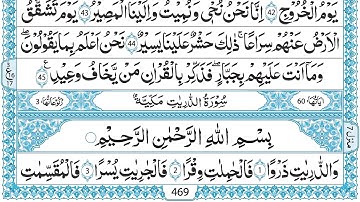 يَوْمُ الْخُرُوْجِ 42 اِنَّا نَحْنُ نُحْيٖ وَنُمِيْتُ وَاِلَيْنَا الْمَصِيْرُ 43 يَوْمَ تَشَقَّقُ
الْاَرْضُ عَنْهُمْ سِرَاعًا ذٰلِكَ حَشْرٌ عَلَيْنَا يَسِيْرٌ 44 نَحْنُ اَعْلَمُ بِمَا يَقُوْلُوْنَ
وَمَا اَنْتَ عَلَيْهِمْ بِجَبَّارٍ فَذَكِّرْ بِالْقُرْاٰنِ مَنْ يَّخَافُ وَعِيْدِ 45
اٰيَاتُهَا 60 سُوْرَةُ الذّٰرِيٰتِ مَكِّيَّةٌ رُكُوْعَاتُهَا 3
بِسْمِ اللّٰهِ الرَّحْمٰنِ الرَّحِيْمِ
وَالذّٰرِيٰتِ ذَرْوًا 1 فَالْحٰمِلٰتِ وِقْرًا 2 فَالْجٰرِيٰتِ يُسْرًا 3 فَالْمُقَسِّمٰتِ
469